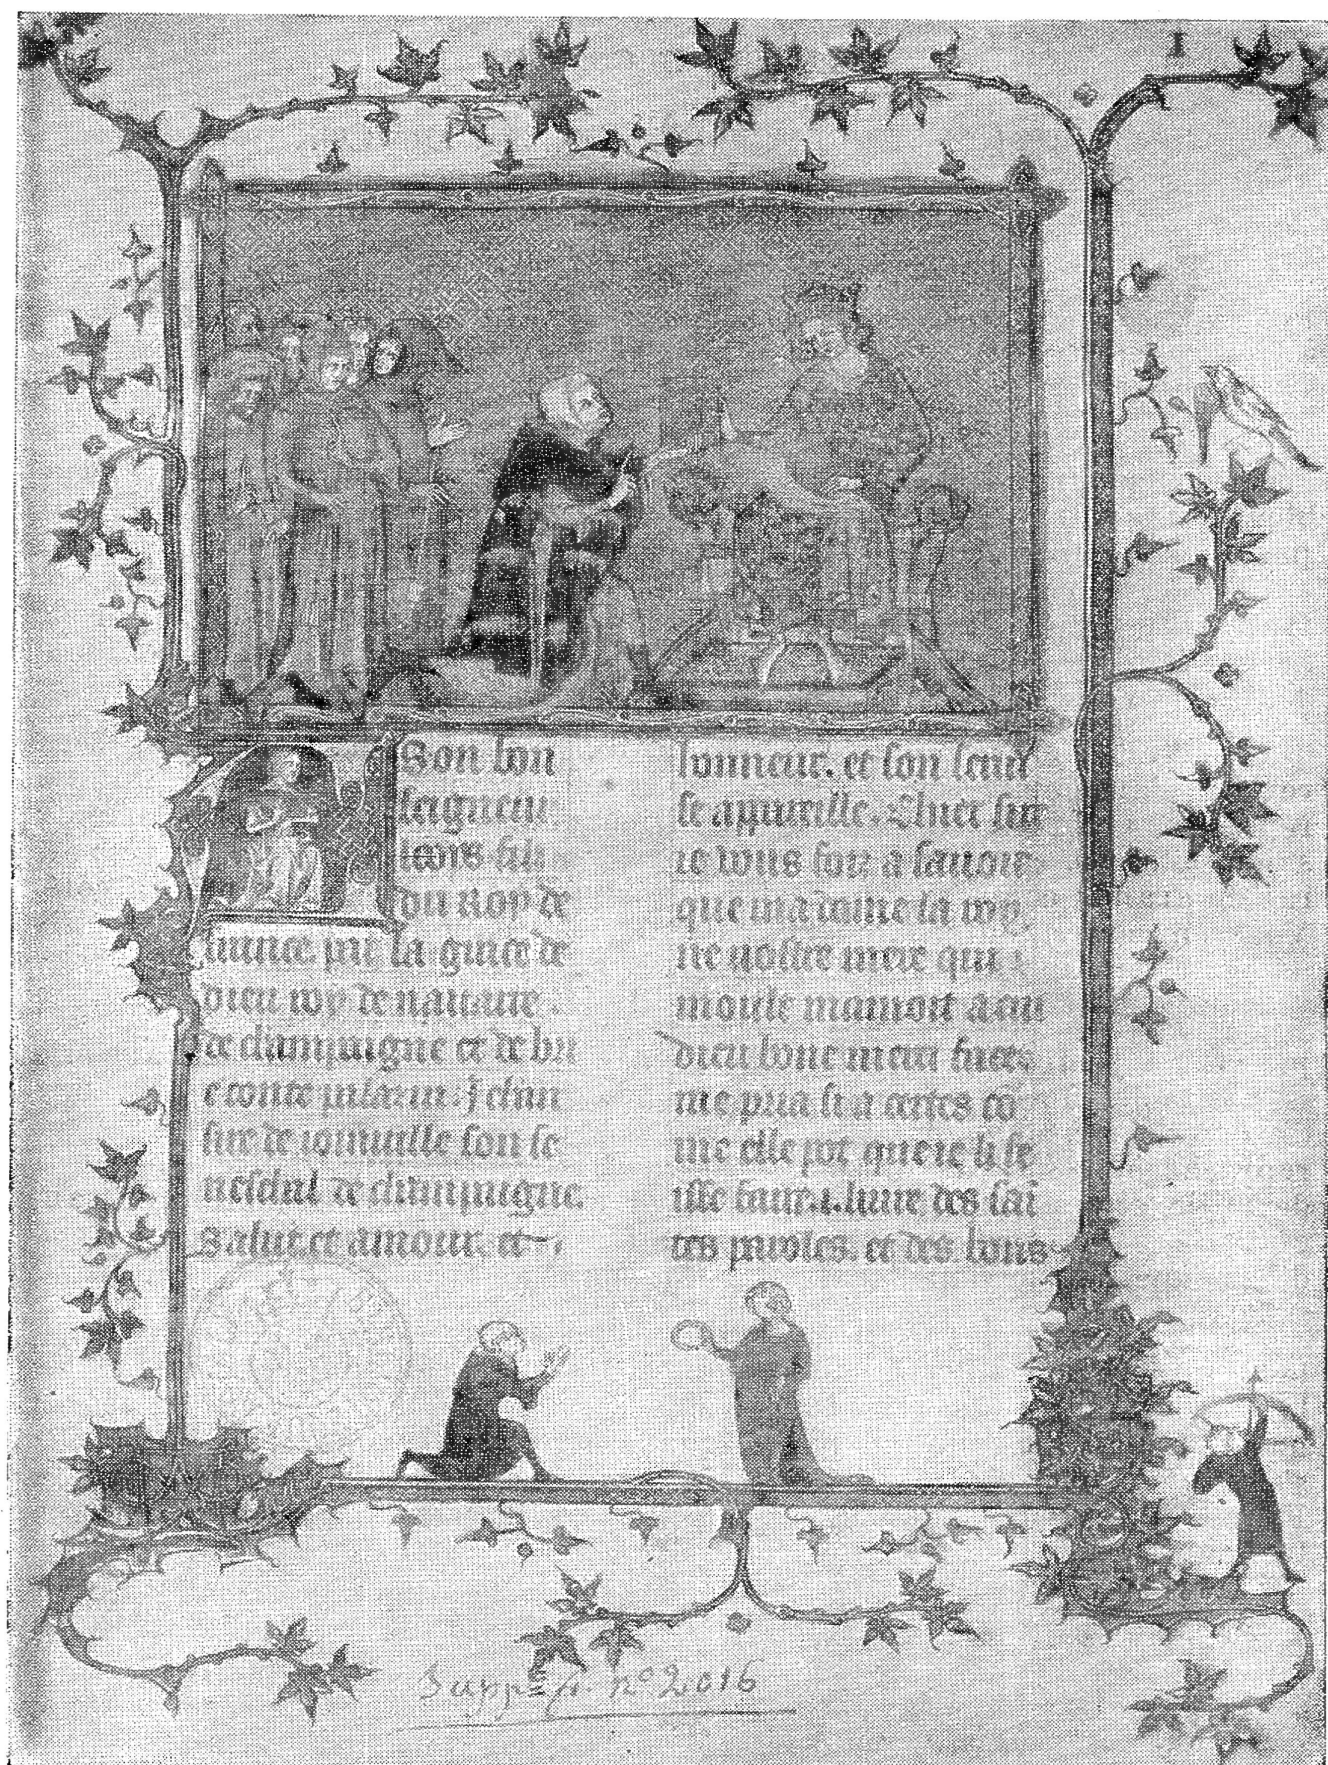 I
A son bon
seigneur
looys filz
du Roy de
france. par la grace de
dieu roy de nauarre.
de champaigne et de bri
e conte palazin. Jehan
sire de ioinuille son se
neschal de champaigne.
Salut. et amour. et
honneur. et son serui
se appareille. Chier sire
ie vous foiz a sauoir
que ma dame la roy
ne vostre mere qui
moult mamoit a cui
dieu bone merci face.
me pria si a certes cō
me elle pot que ie li fe
isse faire .i. liure des saī
tes paroles. et des bons
Supp. fr. n° 2016